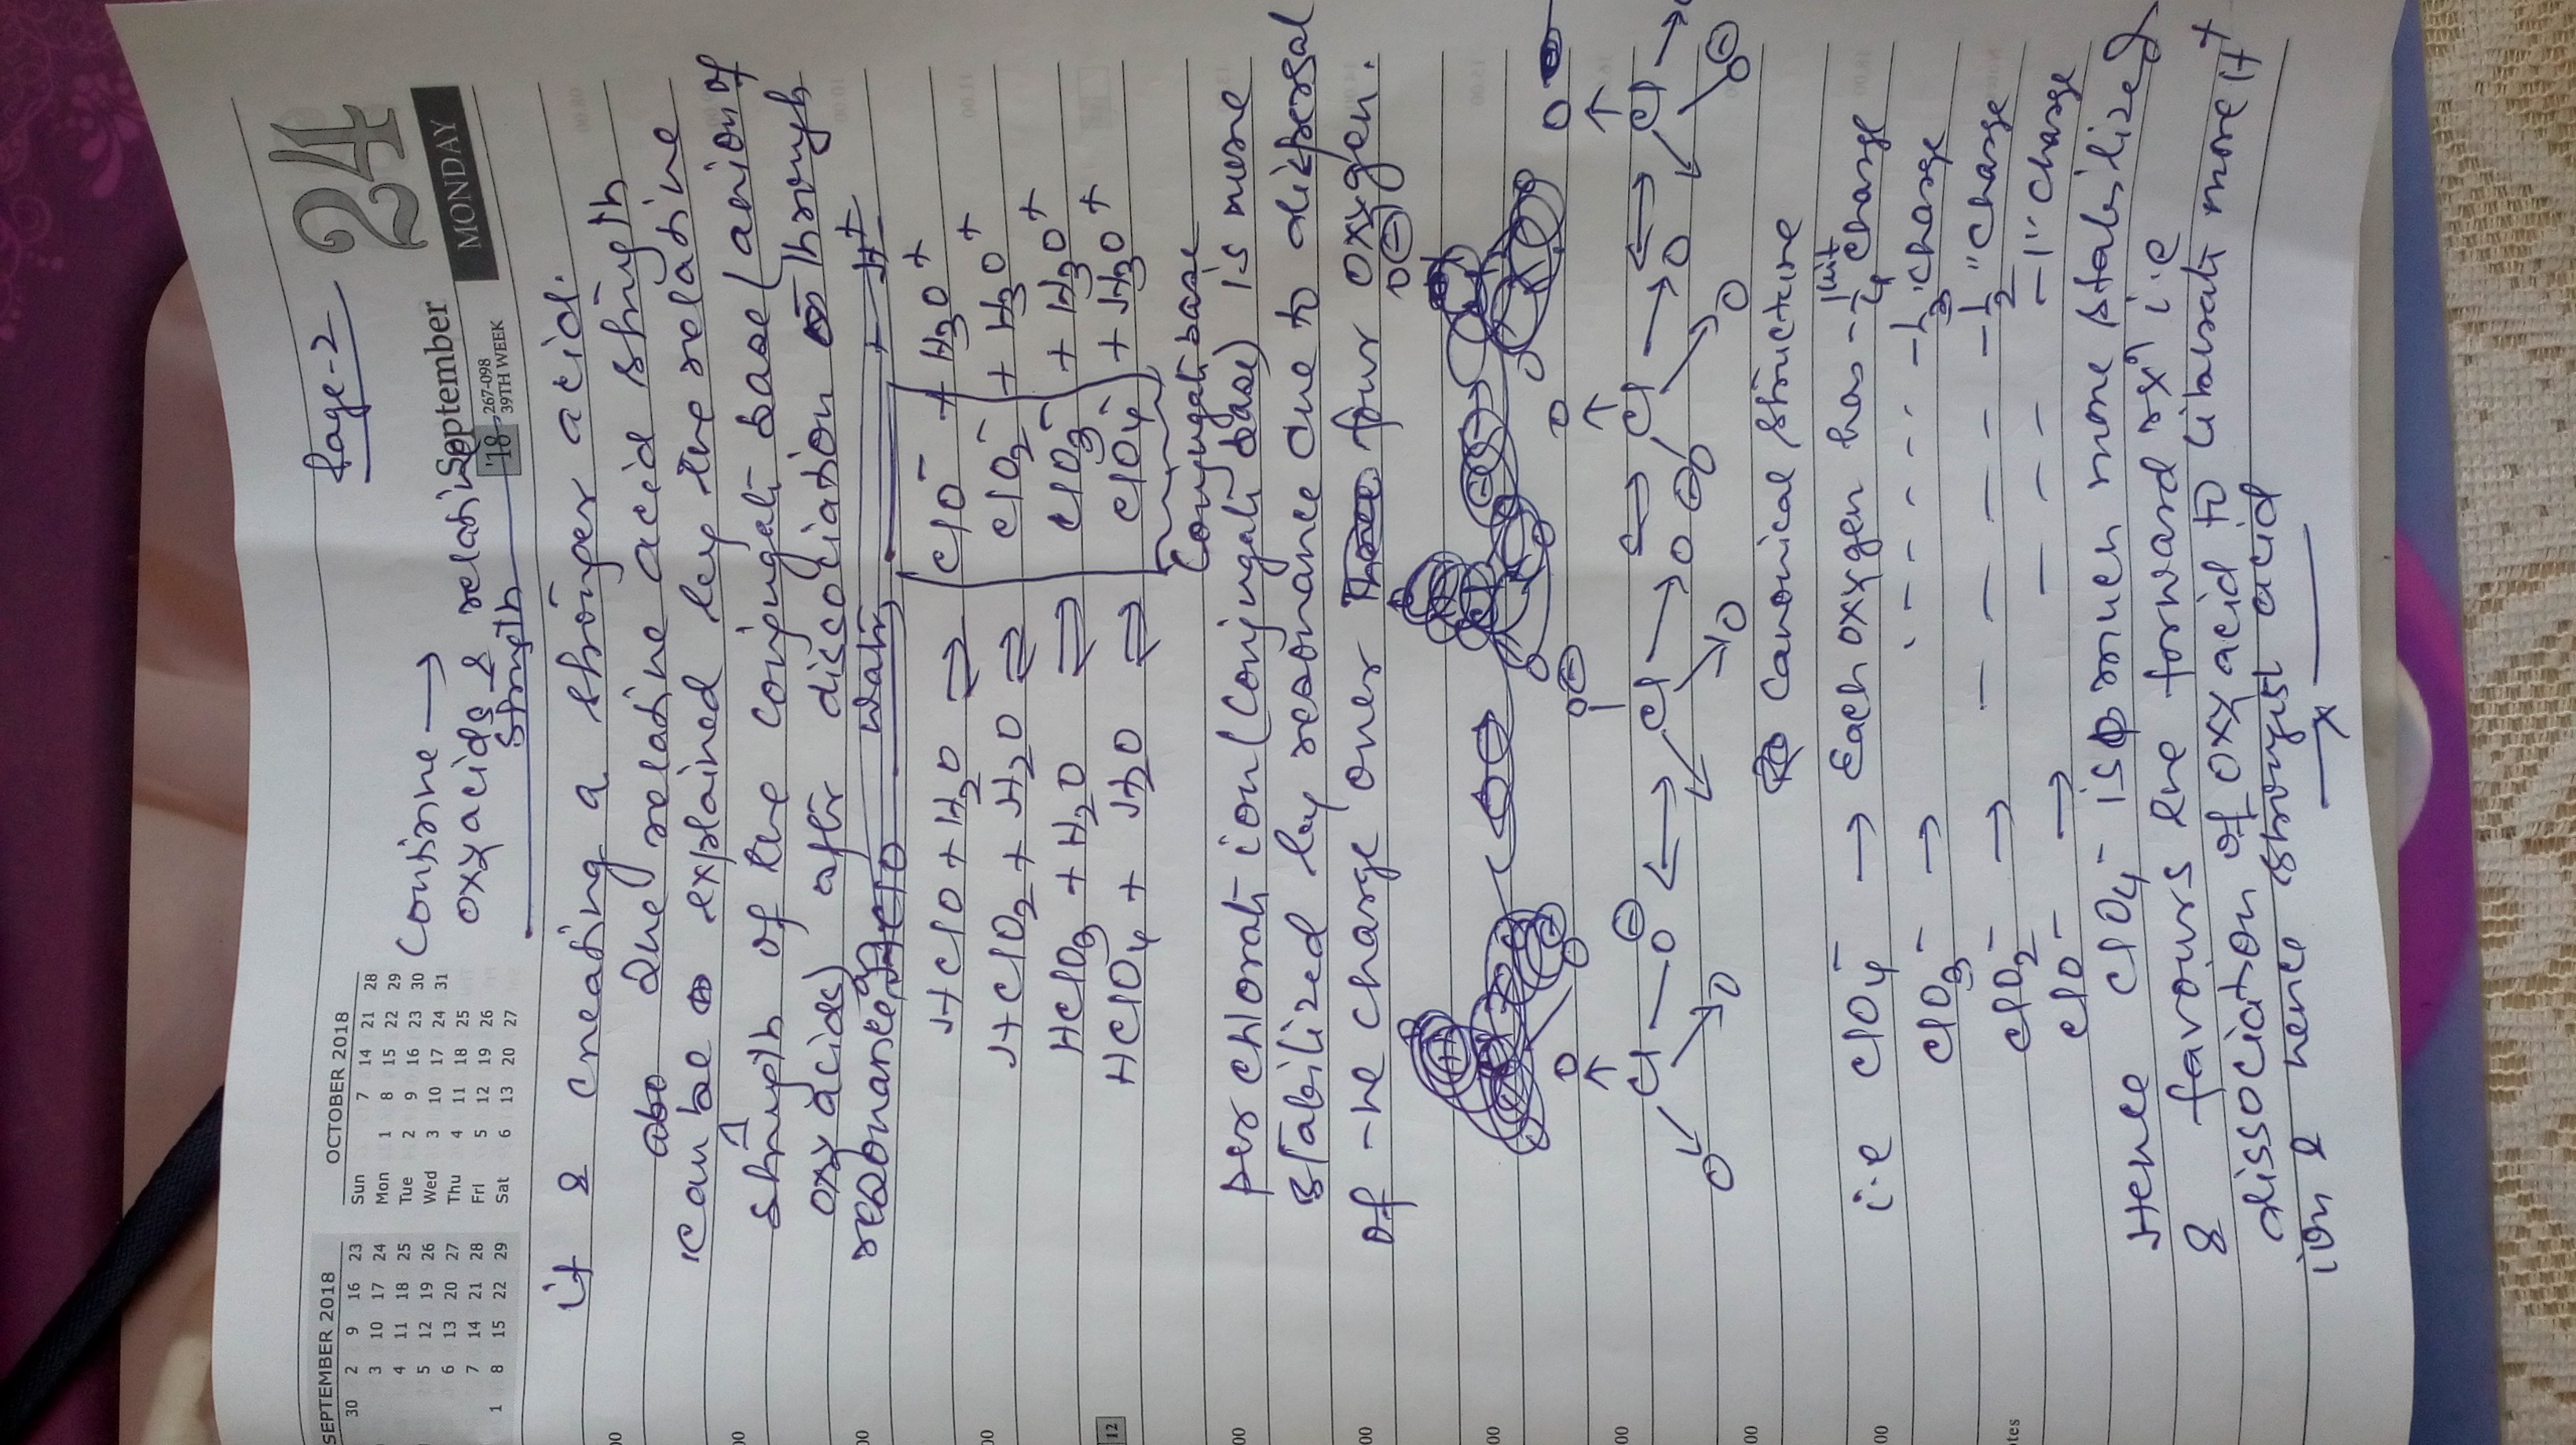 Page-2
24
MONDAY
September
'18
267-098
39TH WEEK
SEPTEMBER 2018
30 2 9 16 23
3 10 17 24
4 11 18 25
5 12 19 26
6 13 20 27
7 14 21 28
1 8 15 22 29
OCTOBER 2018
Sun 7 14 21 28
Mon 1 8 15 22 29
Tue 2 9 16 23 30
Wed 3 10 17 24 31
Thu 4 11 18 25
Fri 5 12 19 26
Sat 6 13 20 27
Continue →
oxyacids & relative
strength
it & creating a stronger acid.
The relative acid strength
can be explained by the relative
strength of the conjugate base (anion of
oxy acids) after dissociation through
resonance as water
HClO + H2O ⇌ ClO- + H3O+
HClO2 + H2O ⇌ ClO2- + H3O+
HClO3 + H2O ⇌ ClO3- + H3O+
HClO4 + H2O ⇌ ClO4- + H3O+
Conjugate base
per chlorate ion (conjugate base) is more
stabilized by resonance due to dispersal
of -ve charge over four oxygen.
Canonical structure
i.e ClO4- → Each oxygen has -1/4 unit charge
ClO3- → -1/3 " charge
ClO2- → -1/2 " charge
ClO- → -1 " charge
Hence ClO4- is much more stabilized
& favours the forward rxn i.e
dissociation of oxyacid to liberate more H+
ion & hence strongest acid
x
12